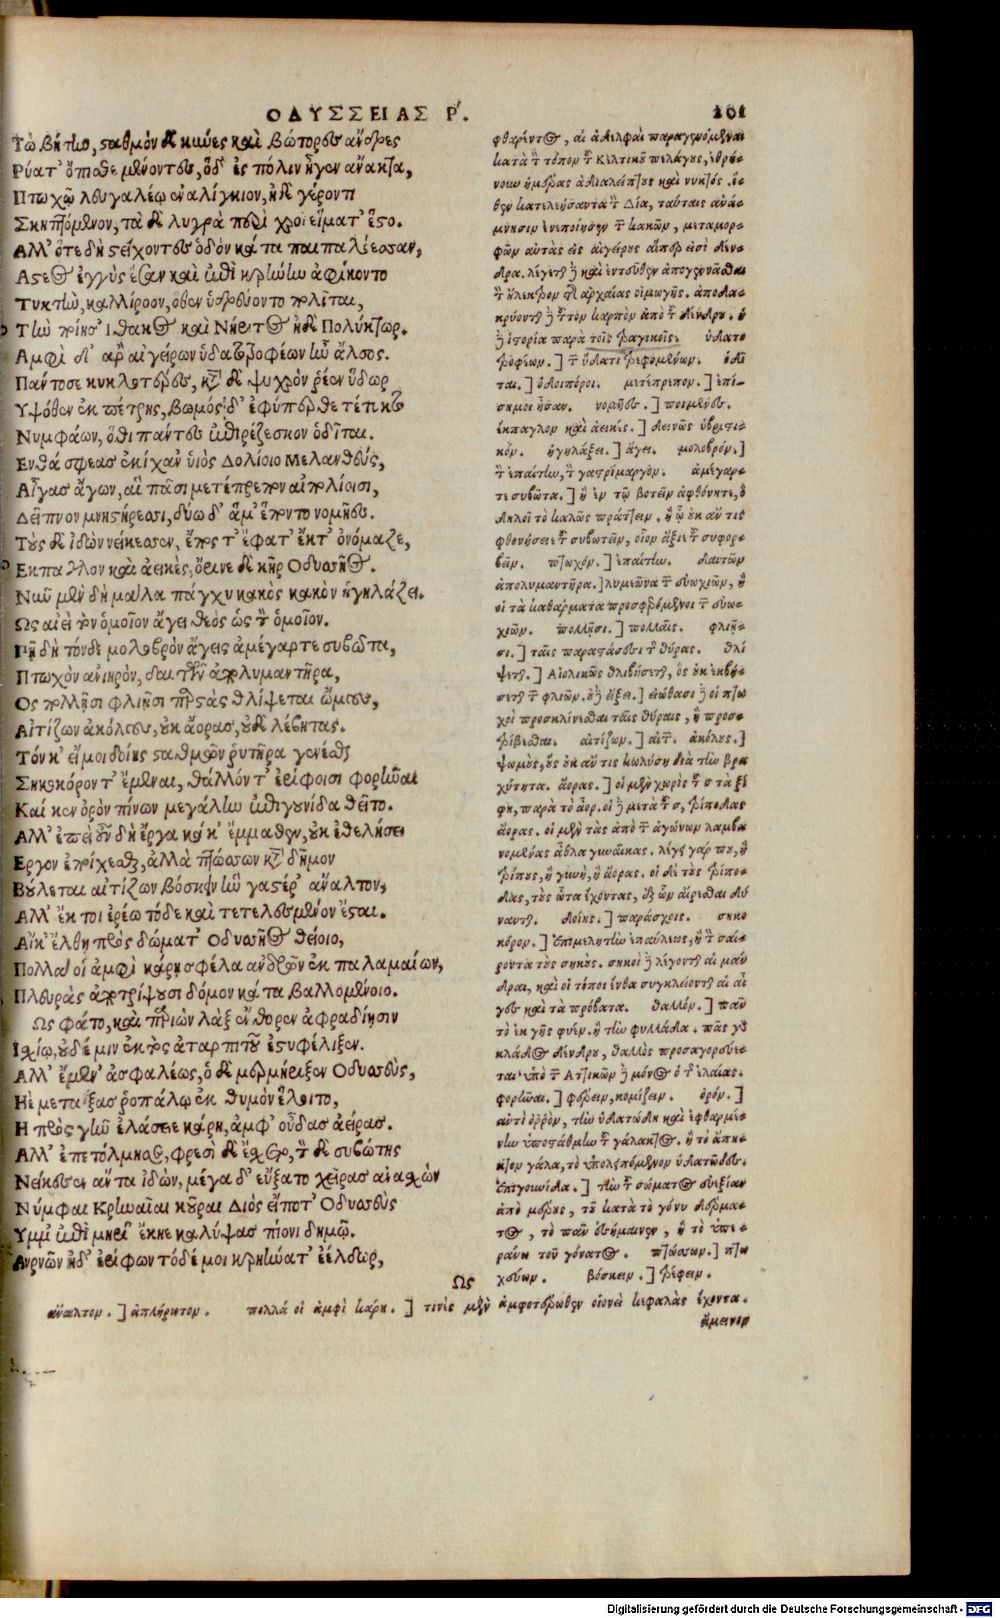 ΟΔΥΣΣΕΙΑΣ Ρ.
201
Τὼ βήτην, σταθμὸν δὲ κύνες καὶ βώτορες ἄνδρες
Ρύατ' ὄπισθε μένοντες, ὅδ' ἐς πόλιν ἦγεν ἄνακτα,
Πτωχῷ λευγαλέῳ ἐναλίγκιον, ἠδὲ γέροντι
Σκηπτόμενον, τὰ δὲ λυγρὰ περὶ χροῒ εἵματ' ἕστο.
Αλλ' ὅτε δὴ στείχοντες ὁδὸν κάτα παιπαλόεσσαν,
Αστεος ἐγγὺς ἔσαν καὶ ἐπὶ κρήνην ἀφίκοντο
Τυκτὴν, καλλίροον, ὅθεν ὑδρεύοντο πολῖται,
Τὴν ποίησ' Ιθακος καὶ Νήριτος ἠδὲ Πολύκτωρ.
Αμφὶ δ' ἄρ' αἰγείρων ὑδατοτρεφέων ἦν ἄλσος.
Πάντοσε κυκλοτερὲς, κατὰ δὲ ψυχρὸν ῥέεν ὕδωρ
Υψόθεν ἐκ πέτρης, βωμὸς δ' ἐφύπερθε τέτυκτο
Νυμφάων, ὅθι πάντες ἐπιρρέζεσκον ὁδῖται.
Ενθά σφεας ἐκίχαν' ὑιὸς Δολίοιο Μελανθεύς,
Αἶγας ἄγων, αἳ πᾶσι μετέπρεπον αἰπολίοισι,
Δεῖπνον μνηστήρεσσι, δύω δ' ἅμ' ἕποντο νομῆες.
Τοὺς δὲ ἰδὼν νείκεσσεν, ἔπος τ' ἔφατ' ἔκτ' ὀνόμαζε,
Εκπαγλον καὶ ἀεικὲς, ὄρινε δὲ κῆρ Οδυσσῆος.
Νῦν μὲν δὴ μάλα πάγχυ κακὸς κακὸν ἡγηλάζει.
Ως αἰεὶ τὸν ὁμοῖον ἄγει θεὸς ὡς τὸν ὁμοῖον.
Πῆ δὴ τόνδε μολοβρὸν ἄγεις ἀμέγαρτε συβῶτα,
Πτωχὸν ἀνιηρὸν, δαιτῶν ἀπολυμαντῆρα,
Ος πολλῇσι φλιῇσι παραστὰς θλίψεται ὤμους,
Αἰτίζων ἀκόλους, οὐκ ἄορας, οὐδὲ λέβητας.
Τόν κ' εἴ μοι δοίης σταθμῶν ῥυτῆρα γενέσθαι
Σηκοκόρον τ' ἔμεναι, θαλλόν τ' ἐρίφοισι φορῆναι
Καί κεν ὀρὸν πίνων μεγάλην ἐπιγουνίδα θεῖτο.
Αλλ' ἐπεὶ οὖν δὴ ἔργα κάκ' ἔμμαθεν, οὐκ ἐθελήσει
Εργον ἐποίχεσθαι, ἀλλὰ πτώσσων κατὰ δῆμον
Βούλεται αἰτίζων βόσκειν ἣν γαστέρ' ἄναλτον,
Αλλ' ἔκ τοι ἐρέω τόδε καὶ τετελεσμένον ἔσται.
Αἴ κ' ἔλθη πρὸς δώματ' Οδυσσῆος θείοιο,
Πολλά οἱ ἀμφὶ κάρη σφέλα ἀνδρῶν ἐκ παλαμαίων,
Πλευρὰς ἀποτρίψουσι δόμον κάτα βαλλομένοιο.
Ως φάτο, καὶ παριὼν λὰξ ἔνθορεν ἀφραδίῃσιν
Ισχίῳ, οὐδέ μιν ἐκτὸς ἀταρπιτοῦ ἐστυφέλιξεν.
Αλλ' ἔμεν' ἀσφαλέως, ὁ δὲ μερμήριξεν Οδυσσεὺς,
Ηὲ μεταΐξας ῥοπάλῳ ἐκ θυμὸν ἕλοιτο,
Η πρὸς γῆν ἐλάσειε κάρη, ἀμφ' οὖδας ἀείρας.
Αλλ' ἐπετόλμησε, φρεσὶ δὲ ἔσχετο, τὸν δὲ συβώτης
Νείκεσεν ἄντα ἰδών, μέγα δ' εὔξατο χεῖρας ἀνασχὼν
Νύμφαι Κρηναῖαι κοῦραι Διὸς εἴποτ' Οδυσσεὺς
Υμμ' ἐπὶ μηρί' ἔκηε καλύψας πίονι δημῷ.
Αρνῶν ἠδ' ἐρίφων τόδέ μοι κρηήνατ' ἐέλδωρ,
Ως
φθαρέντος, αἱ ἀδελφαὶ παραγενόμεναι
κατὰ τὸν τόπον τοῦ Κελτικοῦ πελάγους, ἐθρή-
νουν ἡμέρας ἀδιαλείπτους καὶ νυκτός. ὅ-
θεν κατελεήσαντα τὸν Δία, ταύταις ἀνά-
μνησιν ἐνεποίησεν τῶν κακῶν, μεταμορ-
φῶν αὐτὰς εἰς αἰγείρους αἵπερ εἰσὶ δέν-
δρα. λέγεται δὲ καὶ ἐντεῦθεν ἀπογεννᾶσθαι
τὸν ἤλεκτρον τῆς ἀρχαίας οἰμωγῆς. ἀποδα-
κρύονται δὲ τὸν καρπὸν ἀπὸ τοῦ δένδρου. ἡ
δὲ ἱστορία παρὰ τοῖς τραγικοῖς. ὑδατο
τρεφέων.] τῶν ὕδατι τρεφομένων. ὁδῖ
ται.] ὁδοιπόροι. μετέπρεπον.] ἐπί-
σημοι ἦσαν. νομῆες.] ποιμένες.
ἔκπαγλον καὶ ἀεικές.] δεινῶς ὑβριστι-
κόν. ἡγηλάζει.] ἄγει. μολοβρόν.]
τὸν ἐπαίτην, τὸν γαστρίμαργον. ἀμέγαρ-
τε συβῶτα.] ἢ ἐν τῷ βοτεῖν ἀφθόνητε, ὃ
δηλοῖ τὸ καλῶς πράττειν. ἢ ᾧ οὐκ ἄν τις
φθονήσειε τοῦ συβωτεῖν, οἷον ἄξιε τοῦ συφορ-
βεῖν. πτωχόν.] ἐπαίτην. δαιτῶν
ἀπολυμαντῆρα.] λυμεῶνα τῶν εὐωχιῶν, ἢ
οἱ τὰ καθάρματα προσφερόμενοι τῶν εὐω-
χιῶν. πολλῇσι.] πολλαῖς. φλιῇ-
σι.] ταῖς παραστάσεσι τῆς θύρας. θλί
ψεται.] Αἰολικῶς θλιβήσεται, ὃς οὐκ ἐκβή-
σεται τῶν φλιῶν. οὐδὲ εἴξει.] εἰώθασι δὲ οἱ πτω
χοὶ προσκλίνεσθαι ταῖς θύραις, ἢ προσ-
τρίβεσθαι. αἰτίζων.] αἰτῶν. ἀκόλους.]
ψωμοὺς, οὓς οὐκ ἄν τις κωλύσῃ διὰ τὴν βρα
χύτητα. ἄορας.] οἱ μὲν χωρὶς τοῦ σ τὰ ξί
φη, παρὰ τὸ ἄορ. οἱ δὲ μετὰ τοῦ σ, τρίποδας
ἄορας. οἱ μὲν τὰς ἀπὸ τῶν ἀγώνων λαμβα
νομένας ἆθλα γυναῖκας. λέγει γάρ που, ἢ
τρίπους, ἢ γυνὴ, ἢ ἄορας. οἱ δὲ τοὺς τρίπο-
δας, τοὺς ὦτα ἔχοντας, ἐξ ὧν αἴρεσθαι δύ
νανται. δοίης.] παράσχοις. σηκο
κόρον.] ἐπιμελητὴν ἐπαύλεως, ἢ τὸν σαί-
ροντα τοὺς σηκούς. σηκοὶ δὲ λέγονται αἱ μάν
δραι, καὶ οἱ τόποι ἔνθα συγκλείονται αἱ αἶ
γες καὶ τὰ πρόβατα. θαλλόν.] πᾶν
τὸ ἐκ γῆς φυέν. ἢ τὴν φυλλάδα. πᾶς γὰρ
κλάδος δένδρου, θαλλὸς προσαγορεύε-
ται ὑπὸ τῶν Ἀττικῶν δὲ μόνος ὁ τῆς ἐλαίας.
φορῆναι.] φέρειν, κομίζειν. ὀρόν.]
ἀντὶ ὀρρὸν, τὴν ὑδατώδη καὶ ἐφθαρμέ-
νην ὑποστάθμην τοῦ γάλακτος. ἢ τὸ ἄπη-
κτον γάλα, τὸ ὑπολειπόμενον ὑδατῶδες.
ἐπιγουνίδα.] τὴν τοῦ σώματος εὐεξίαν
ἀπὸ μέρους, τοῦ κατὰ τὸ γόνυ δέρμα-
τος, τὸ πᾶν ἐσήμαινεν, ἢ τὸ ὑπε-
ράνω τοῦ γόνατος. πτώσσων.] πτω
χεύων. βόσκειν.] τρέφειν.
ἄναλτον.] ἀπλήρωτον. πολλά οἱ ἀμφὶ κάρη.] τινὲς μὲν ἀμφοτέρωθεν οἱονεὶ κεφαλὰς ἔχοντα.
ἄμεινον
Digitalisierung gefördert durch die Deutsche Forschungsgemeinschaft - DFG